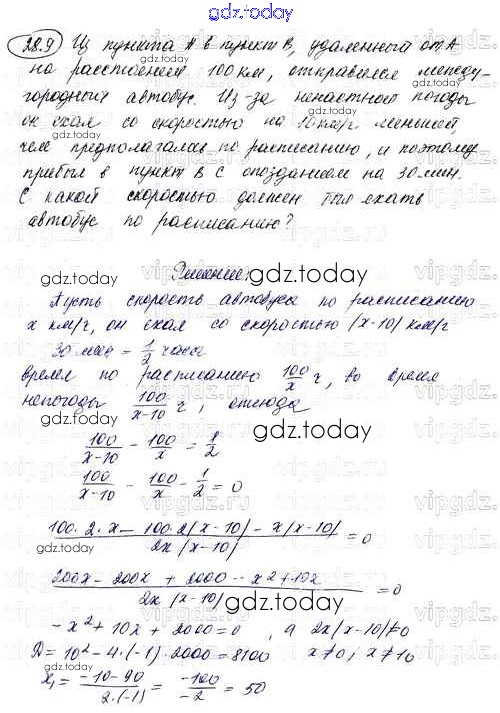 gdz.today
28.9 Из пункта А в пункт В, удаленный от А
на расстоянии 100 км, отправился между-
городный автобус. Из-за ненастной погоды
он ехал со скоростью на 10 км/ч меньшей,
чем предполагалось по расписанию, и поэтому
прибыл в пункт В с опозданием на 30 мин.
С какой скоростью должен был ехать
автобус по расписанию?
Решение:
Пусть скорость автобуса по расписанию
x км/ч, он ехал со скоростью (x-10) км/ч
30 мин = 1/2 часа
время по расписанию 100/x ч, во время
непогоды 100/x-10 ч, отсюда
100/x-10 - 100/x = 1/2
100/x-10 - 100/x - 1/2 = 0
100·2·x - 100·2(x-10) - x(x-10)/2x(x-10) = 0
200x - 200x + 2000 - x²+10x/2x(x-10) = 0
-x²+10x+2000=0, а 2x(x-10)≠0
D=10²-4·(-1)·2000=8100 x≠0, x≠10
x₁= -10-90/2·(-1) = -100/-2 = 50